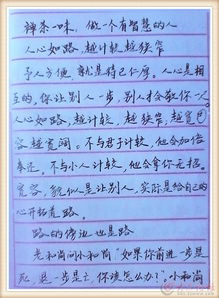 禅茶一味,做一个有智慧的人
人心如路,越计较,越狭窄
予人方便,就是待己仁厚。人心是相
互的,你让别人一步,别人才会敬你一尺
人心如路,越计较,越狭窄,越宽
容,越宽阔。不与君子计较,他会加倍
奉还,不与小人计较,他会拿你无招。
宽容,貌似是让别人,实际是给自己的
心开拓道路。
路的旁边也是路
老和尚问小和尚:"如果你前进一步是
死,退一步是亡,你该怎么办?"小和尚